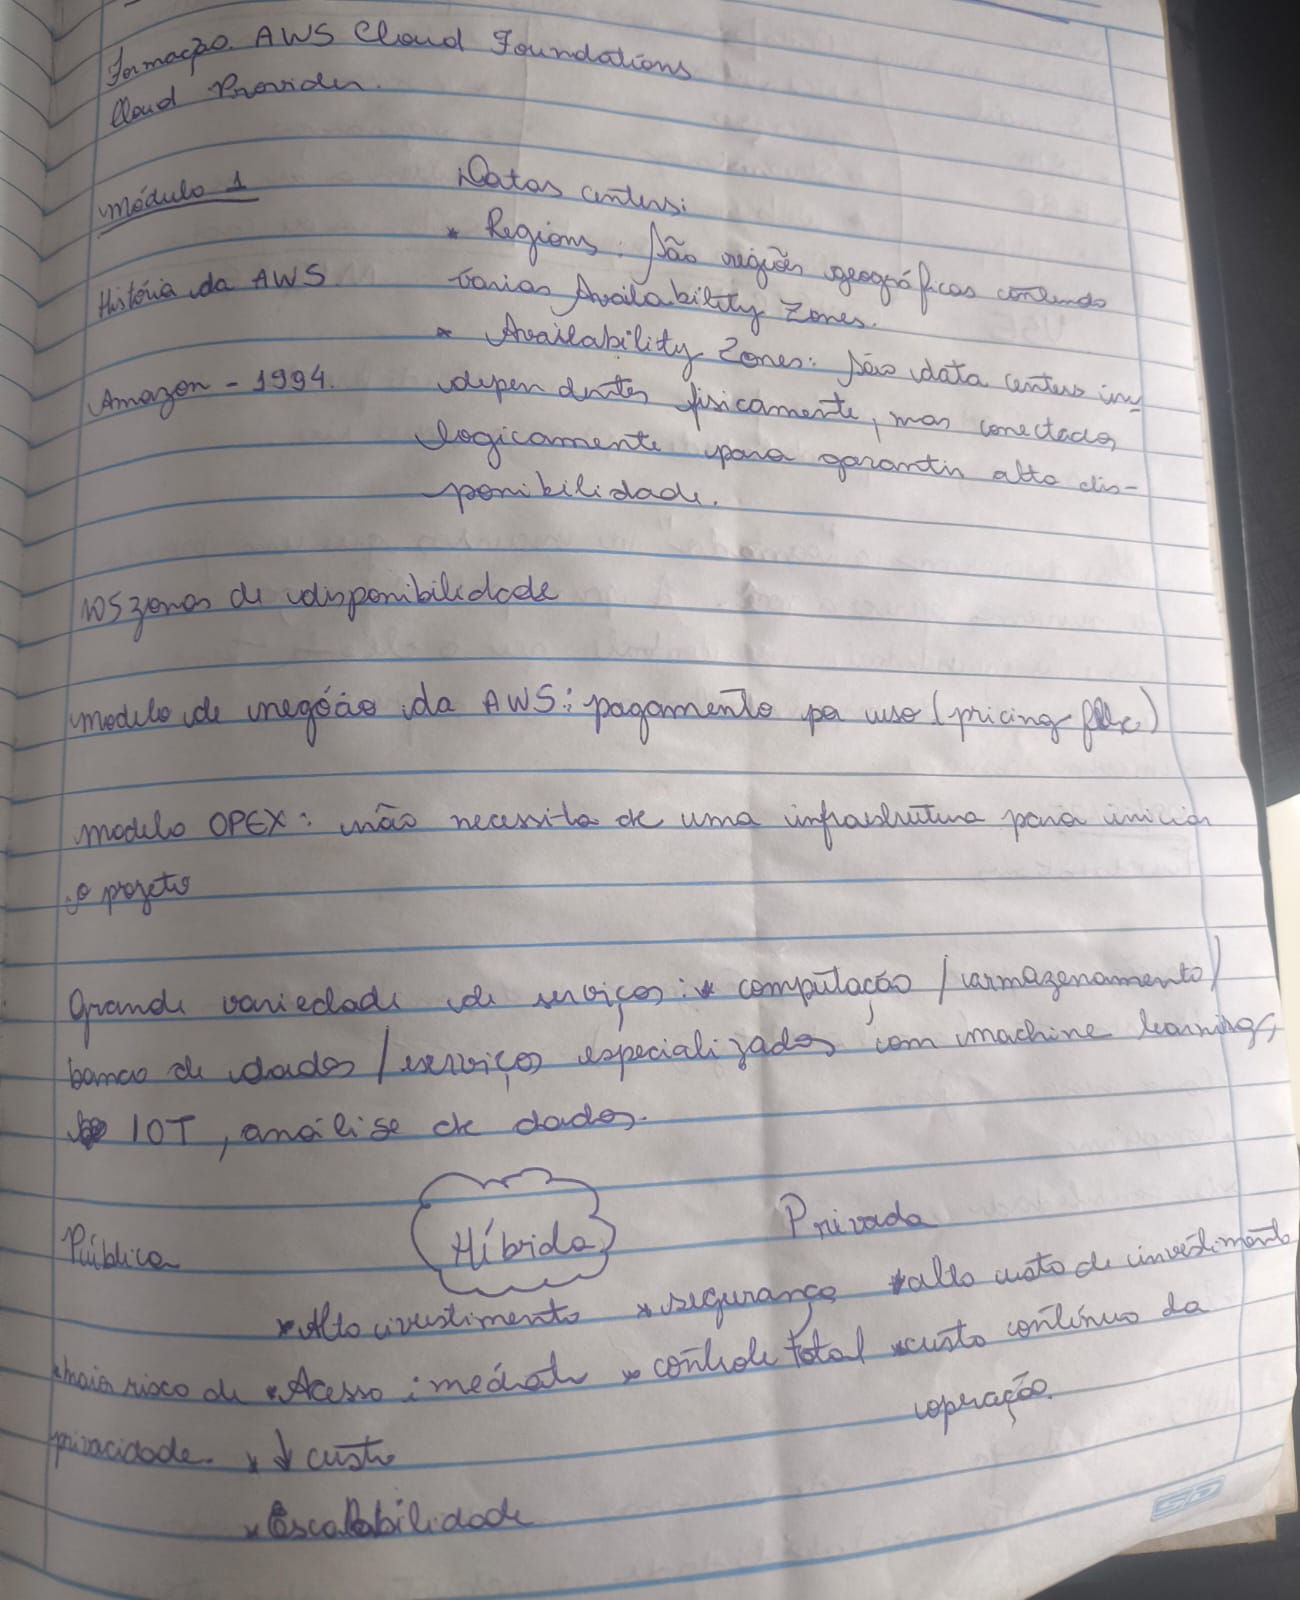 Formação AWS Cloud Foundations
Cloud Provider.
Módulo 1
História da AWS
Amazon - 1994.
Datas centers:
* Regions: São regiões geográficas contendo
varias Availability Zones.
* Availability Zones: São data centers in-
dependentes fisicamente, mas conectados
logicamente para garantir alta dis-
ponibilidade.
105 zonas de disponibilidade
modelo de negócio da AWS: pagamento por uso (pricing
modelo OPEX: não necessita de uma infraestrutura para iniciar
o projeto
Grande variedade de serviços: * computação / armazenamento /
banco de dados / serviços especializados com machine learning,
IOT, análise de dados.
Pública
Híbrida
Privada
* Alto investimento * segurança * alto custo de investimento
* maior risco de * Acesso imediato * controle total * custo contínuo da
operação.
privacidade. * ↓ custo
* Escalabilidade